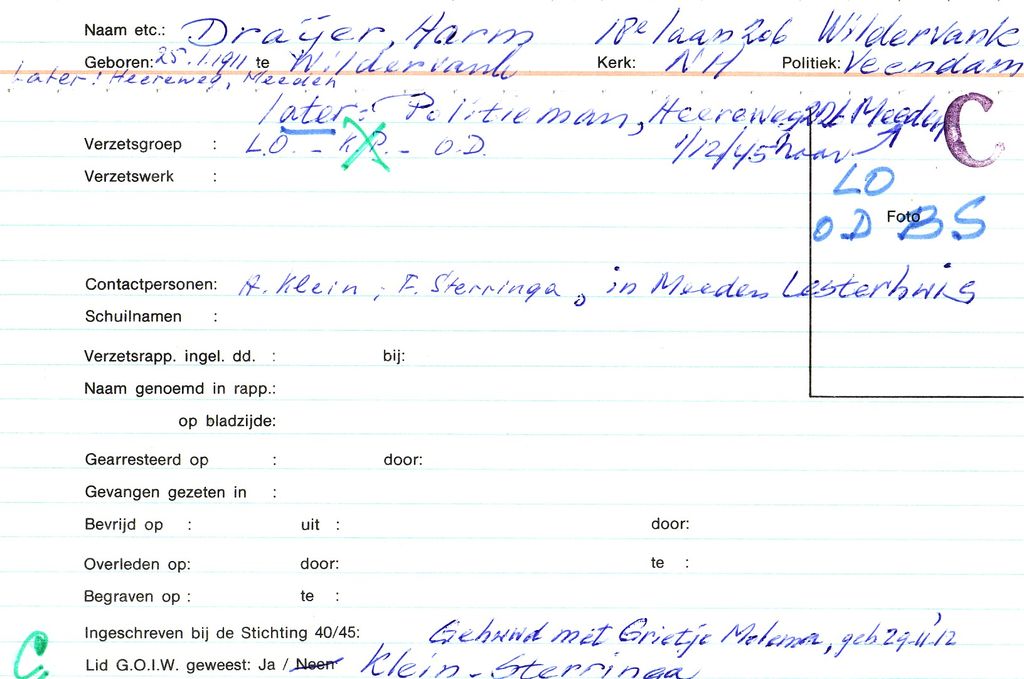 Naam etc.: Draijer, Harm 18e laan 206 Wildervank
Geboren: 25.1.1911 te Wildervank Kerk: NH Politiek: Veendam
Later: Heereweg, Meeden
later: Politieman, Heereweg 201 Meeden
C
Verzetsgroep : L.O. - K.P. - O.D. 1/12/45 naar
Verzetswerk : LO
Foto
O.D BS
Contactpersonen: A. Klein ; F. Sterringa, in Meeden Lesterhuis
Schuilnamen :
Verzetsrapp. ingel. dd. : bij:
Naam genoemd in rapp.:
op bladzijde:
Gearresteerd op : door:
Gevangen gezeten in :
Bevrijd op : uit : door:
Overleden op: door: te :
Begraven op : te :
Ingeschreven bij de Stichting 40/45: Gehuwd met Grietje Molema, geb 29.11.'12
C.
Lid G.O.I.W. geweest: Ja / Neen Klein - Sterringa